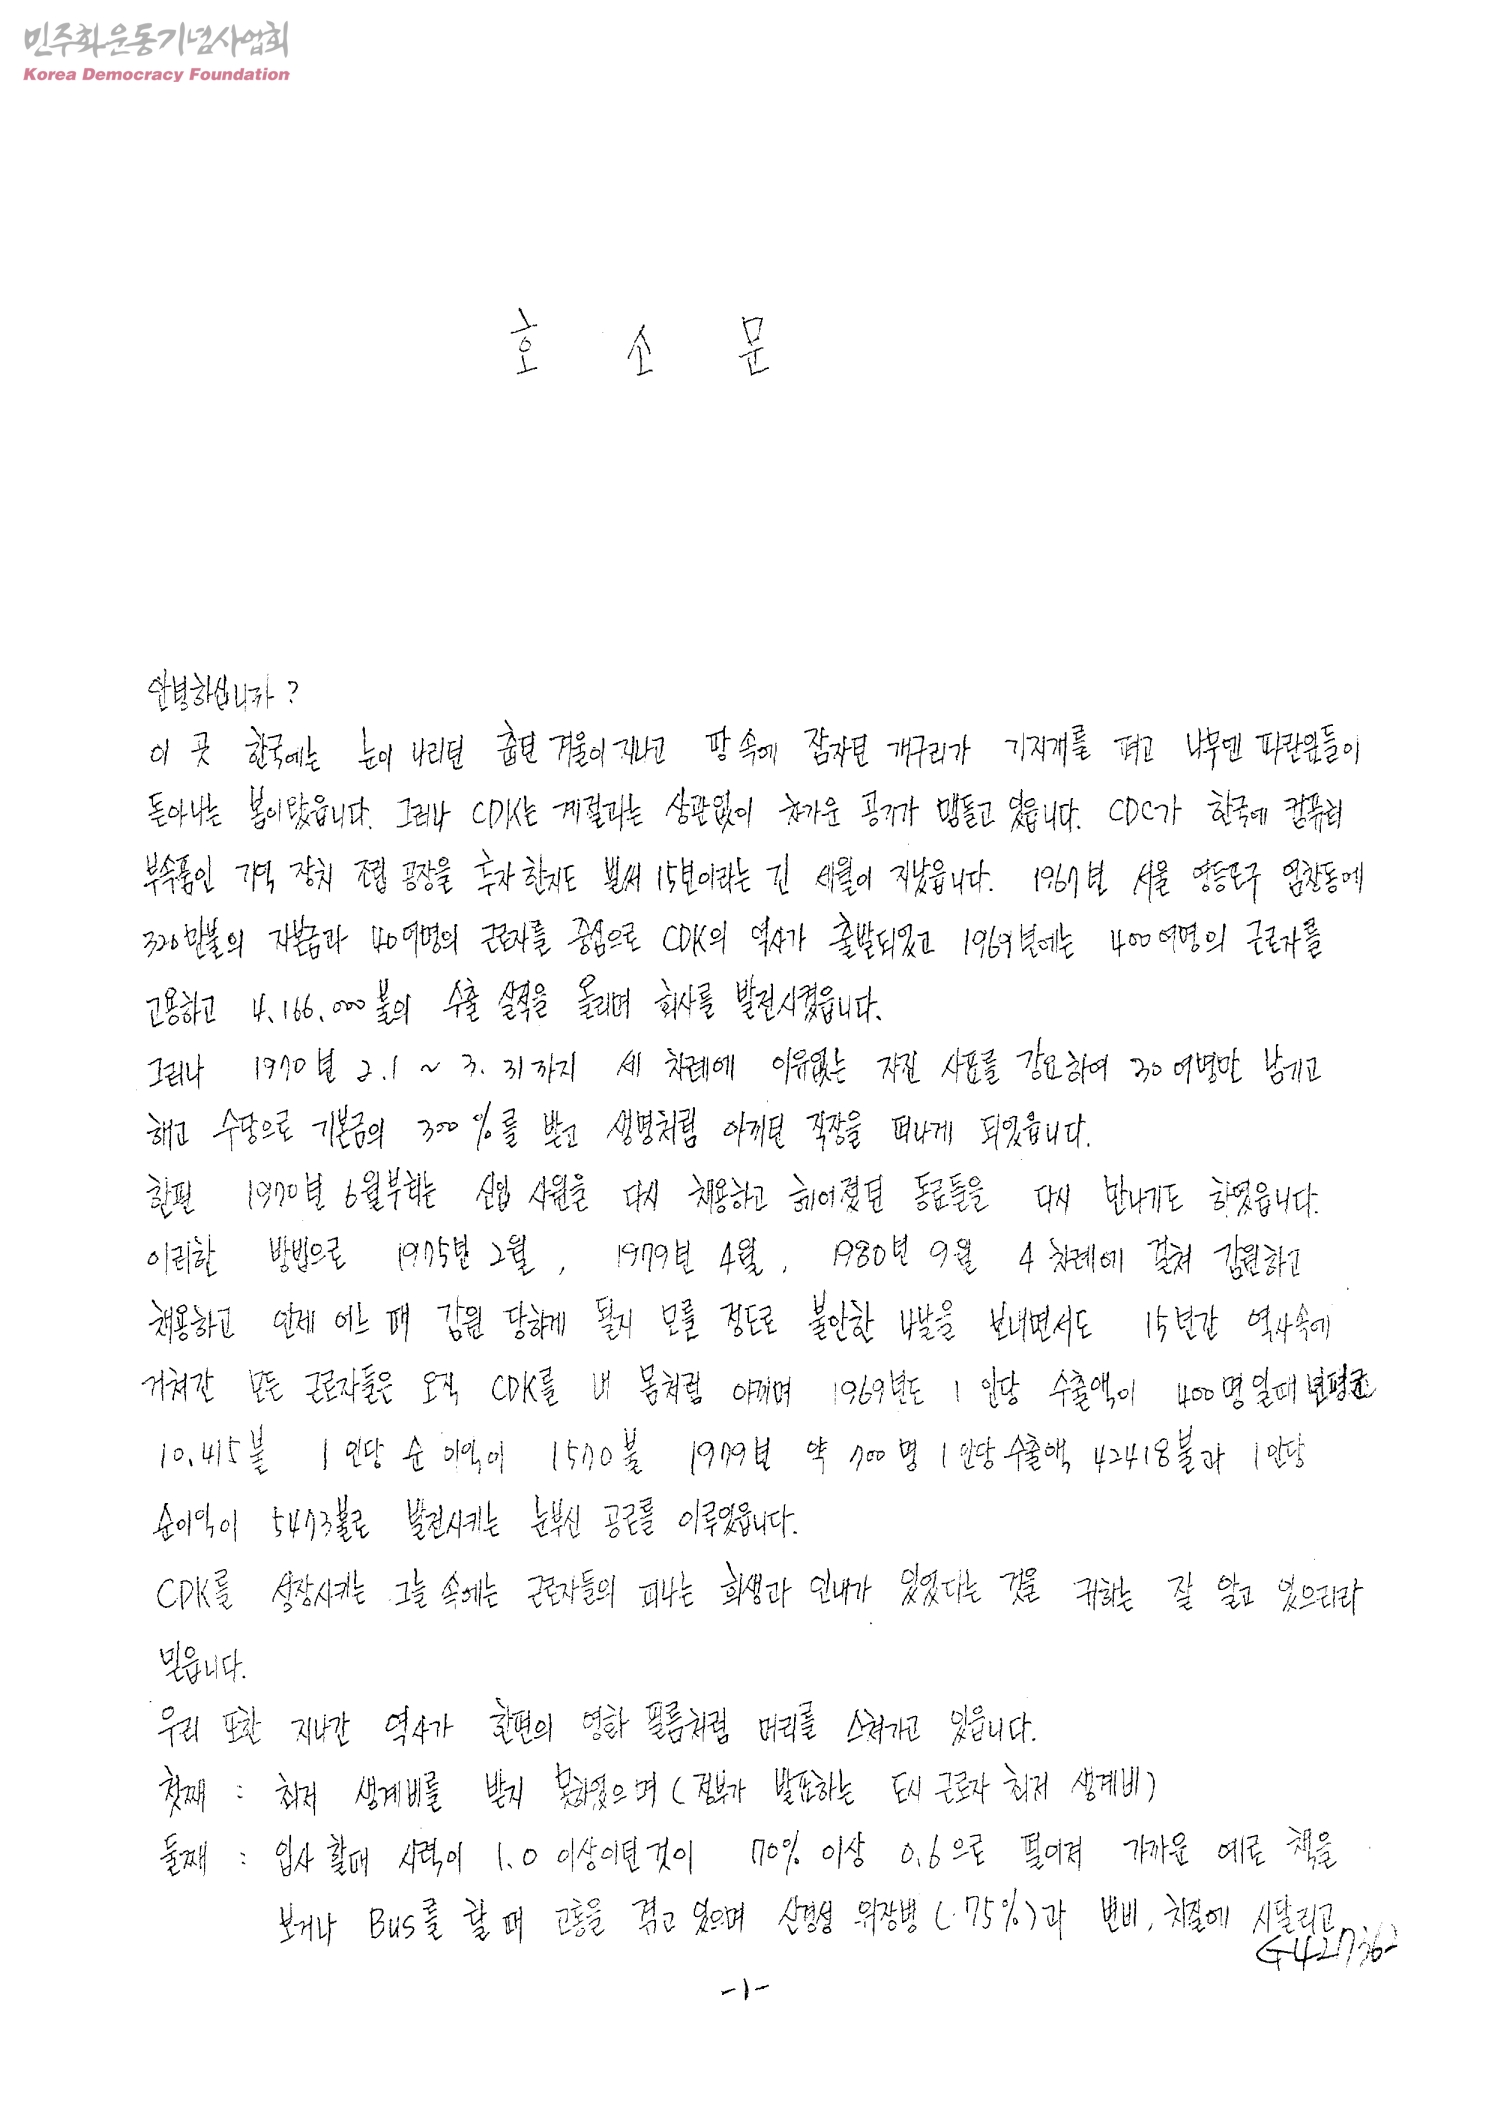 민주화운동기념사업회
Korea Democracy Foundation
호 소 문
안녕하십니까?
이 곳 한국에는 눈이 나리던 춥던 겨울이 지나고 땅속에 잠자던 개구리가 기지개를 펴고 나무엔 파란잎들이
돋아나는 봄이왔읍니다. 그러나 CDK는 계절과는 상관없이 차가운 공기가 맴돌고 있읍니다. CDC가 한국에 컴퓨터
부속품인 기억 장치 조립 공장을 투자한지도 벌써 15년이라는 긴 세월이 지났읍니다. 1967년 서울 영등포구 염창동에
320만불의 자본금과 40여명의 근로자를 중심으로 CDK의 역사가 출발되었고 1969년에는 400여명의 근로자를
고용하고 4,166,000불의 수출 실적을 올리며 회사를 발전시켰읍니다.
그러나 1970년 2.1 ~ 3. 31까지 세 차례에 이유없는 자진 사표를 강요하여 30여명만 남기고
해고 수당으로 기본금의 300%를 받고 생명처럼 아끼던 직장을 떠나게 되었읍니다.
한편 1970년 6월부터는 신입 사원을 다시 채용하고 헤어졌던 동료들을 다시 만나기도 하였읍니다.
이러한 방법으로 1975년 2월, 1979년 4월, 1980년 9월 4차례에 걸쳐 감원하고
채용하고 언제 어느 때 감원 당하게 될지 모를 정도로 불안한 나날을 보내면서도 15년간 역사속에
거쳐간 모든 근로자들은 오직 CDK를 내 몸처럼 아끼며 1969년도 1인당 수출액이 400명일때 년평균
10,415불 1인당 순 이익이 1570불 1979년 약 700명 1인당 수출액 42418불과 1인당
순이익이 5473불로 발전시키는 눈부신 공로를 이루었읍니다.
CDK를 성장시키는 그늘 속에는 근로자들의 피나는 희생과 인내가 있었다는 것을 귀하는 잘 알고 있으리라
믿읍니다.
우리 또한 지나간 역사가 한편의 영화 필름처럼 머리를 스쳐가고 있읍니다.
첫째 : 최저 생계비를 받지 못하였으며 (정부가 발표하는 도시 근로자 최저 생계비)
둘째 : 입사 할때 시력이 1.0 이상이던것이 70% 이상 0.6으로 떨어져 가까운 예로 책을
보거나 Bus를 탈 때 고통을 겪고 있으며 신경성 위장병 (75%)과 변비, 치질에 시달리고
G427362
-1-